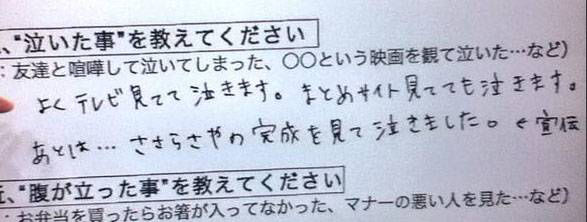 、“泣いた事”を教えてください
：友達と喧嘩して泣いてしまった、〇〇という映画を観て泣いた…など）
よくテレビ見てて泣きます。まとめサイト見てても泣きます。
あとは… ささらさやの完成を見て泣きました。←宣伝
近、“腹が立った事”を教えてください
：お弁当を買ったらお箸が入ってなかった、マナーの悪い人を見た…など）